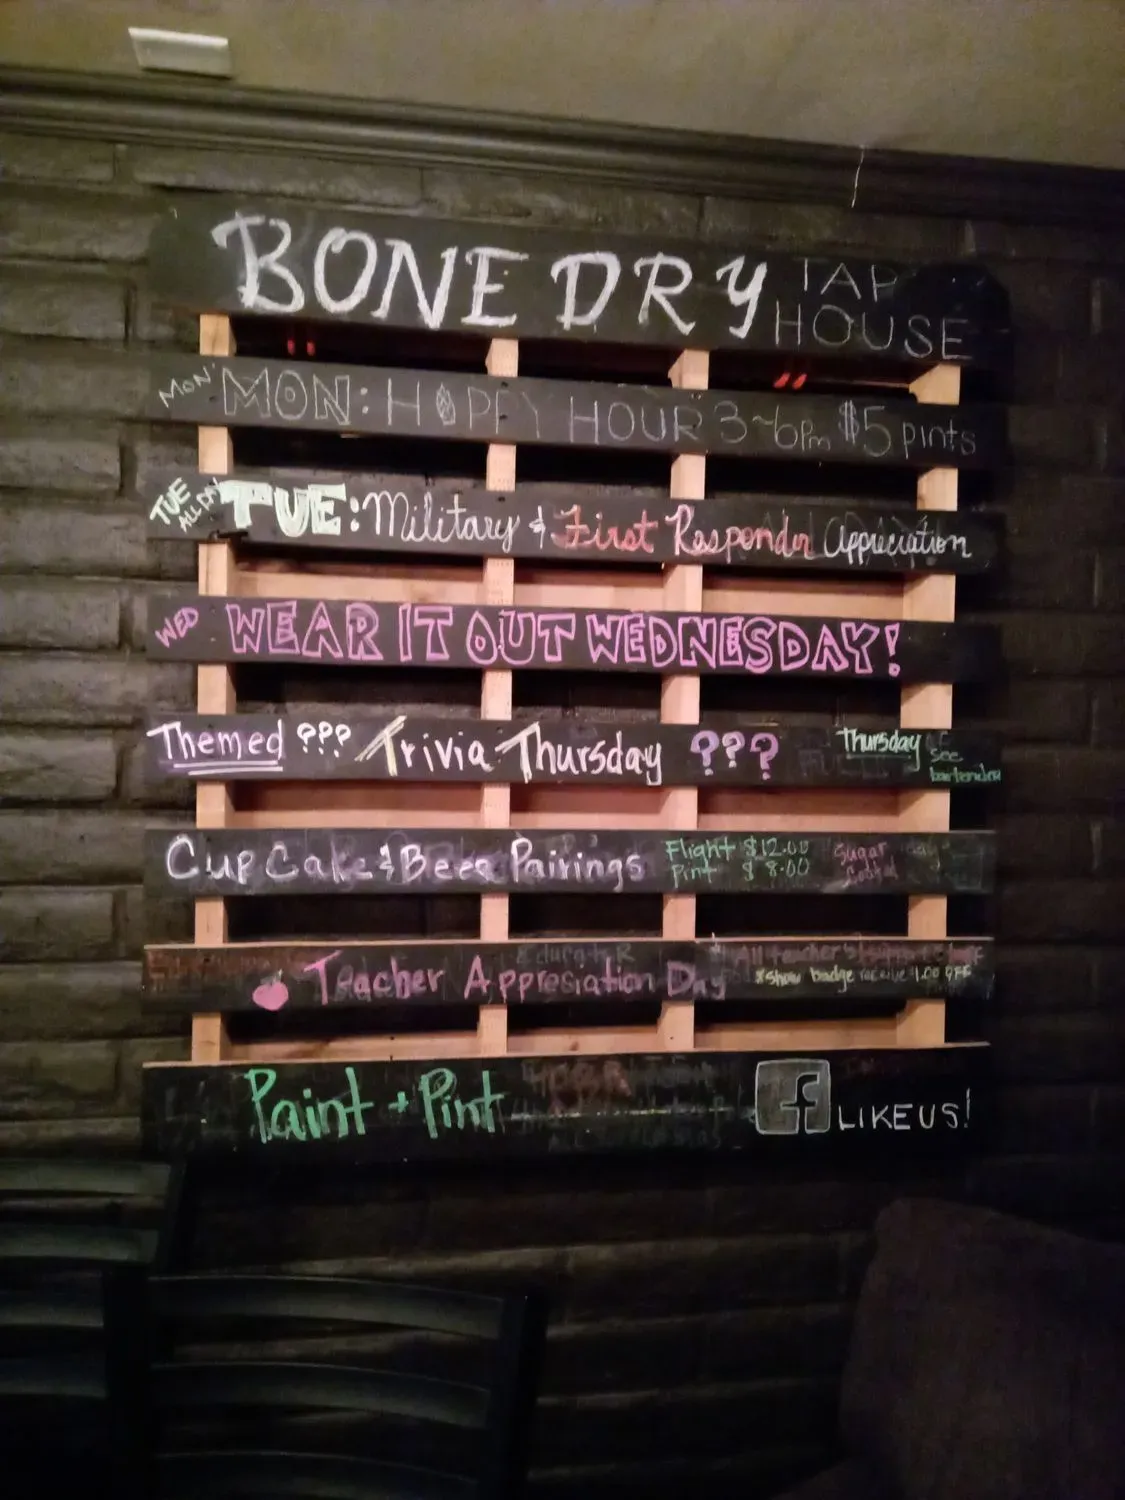 BONE DRY TAP HOUSE
MON MON: HAPPY HOUR 3~6pm $5 pints
TUE ALL DAY TUE: Military & First Responder Appreciation
WED WEAR IT OUT WEDNESDAY!
Themed ??? Trivia Thursday ??? Thursday see bartender
Cup Cake & Beer Pairings Flight $12.00 Sugar
Pint $8.00
Teacher Appresiation Day All teacher's
& show badge receive 1.00 OFF
Paint + Pint f LIKE US!